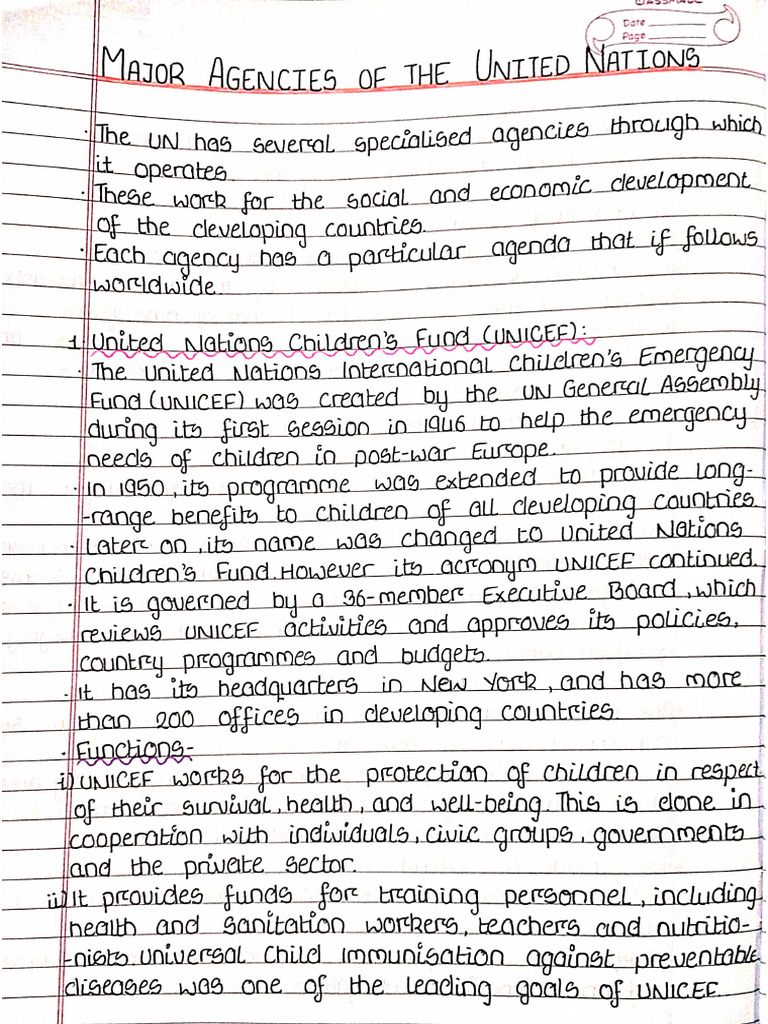 CLASSMATE
Date
Page
MAJOR AGENCIES OF THE UNITED NATIONS
· The UN has several specialised agencies through which
it operates.
· These work for the social and economic development
of the developing countries.
· Each agency has a particular agenda that if follows
worldwide.
1. United Nations Children's Fund (UNICEF):
· The United Nations International Children's Emergency
Fund (UNICEF) was created by the UN General Assembly
during its first session in 1946 to help the emergency
needs of children in post-war Europe.
· In 1950, its programme was extended to provide long-
-range benefits to children of all developing countries.
· Later on, its name was changed to United Nations
Children's Fund. However its acronym UNICEF continued.
· It is governed by a 36-member Executive Board, which
reviews UNICEF activities and approves its policies,
country programmes and budgets.
· It has its headquarters in New York, and has more
than 200 offices in developing countries.
· Functions-
i) UNICEF works for the protection of children in respect
of their survival, health, and well-being. This is done in
cooperation with individuals, civic groups, governments
and the private sector.
ii) It provides funds for training personnel, including
health and sanitation workers, teachers and nutritio-
-nists. Universal Child Immunisation against preventable
diseases was one of the leading goals of UNICEF.